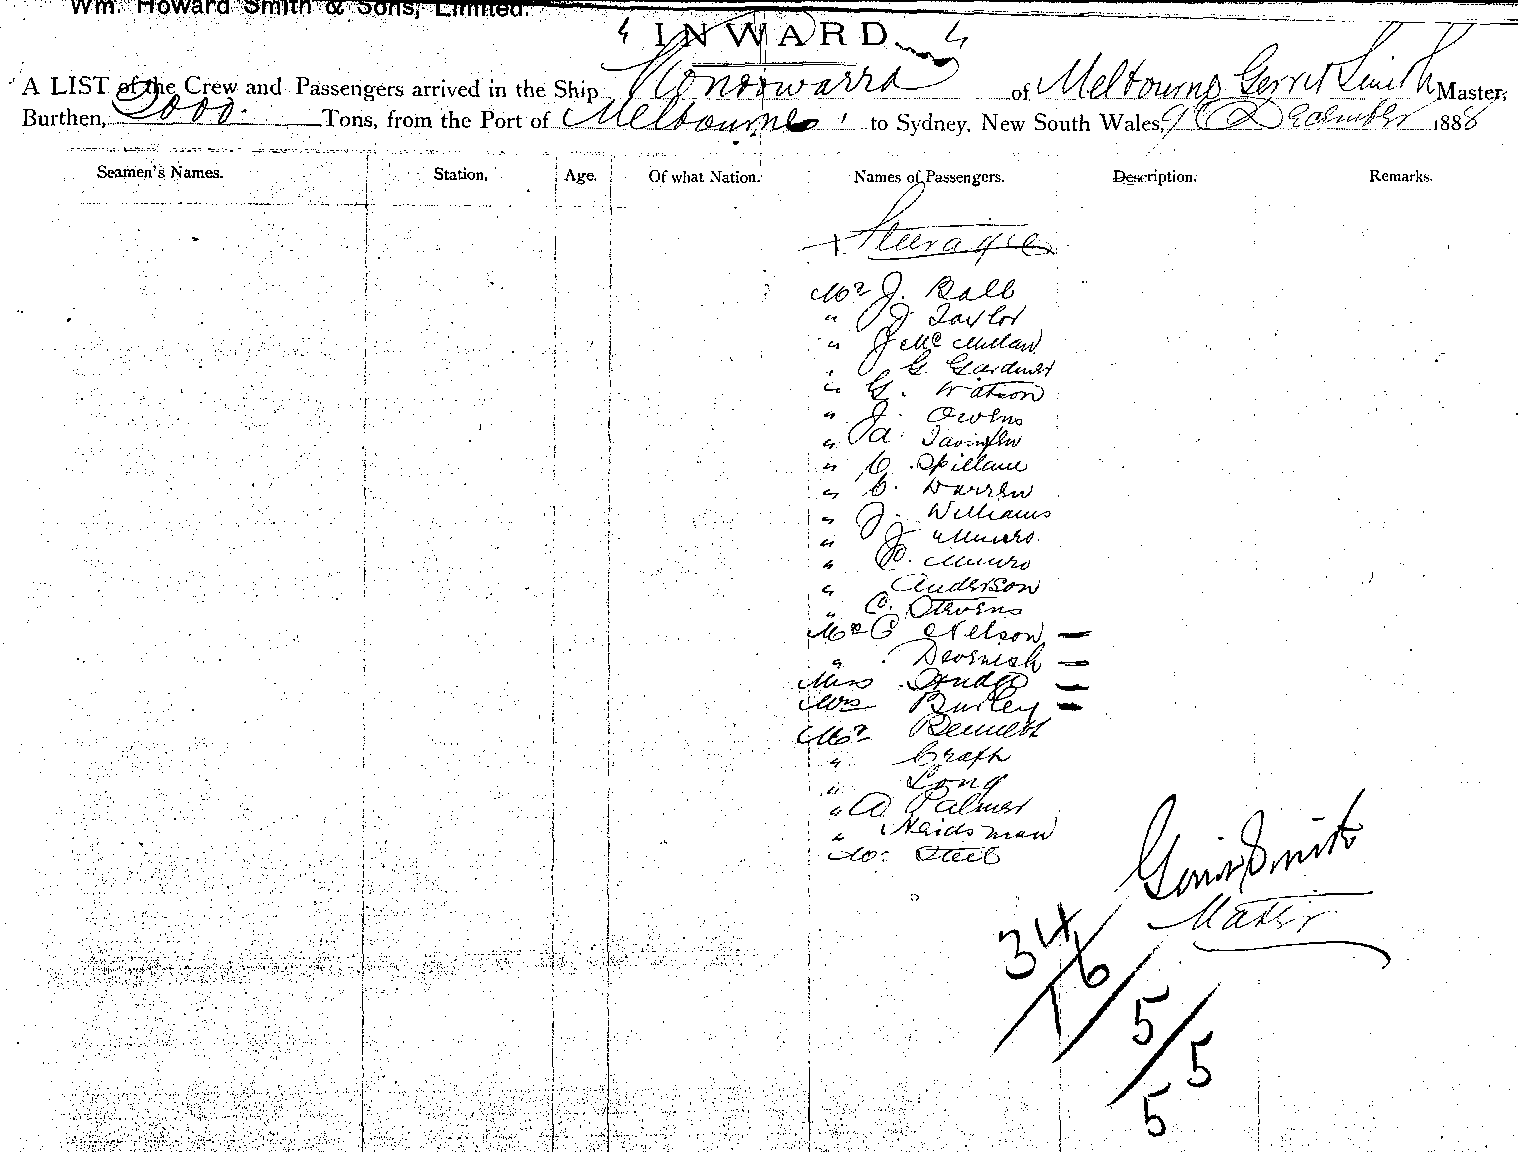 Wm. Howard Smith & Sons, Limited.
" INWARD "
A LIST of the Crew and Passengers arrived in the Ship Konoowarra of Melbourne Gerrit Smith Master,
Burthen, 2000. Tons, from the Port of Melbourne to Sydney, New South Wales, 9th December 1888
Seamen's Names. Station, Age. Of what Nation. Names of Passengers. Description. Remarks.
Steerage
Mr J. Ball
" J Taylor
" J McMillan
" G Gardner
" G. Watson
" J. Owens
" A.
" C. Spillane
" C. Warren
" J. Williams
" J Munro
" P. Munro
" Anderson
" C. Stevens
Mr C Nelson —
" Devenish —
Miss —
Mrs Burley —
Mr Bennett
"
" Long
" A Palmer
" Heidsman
Mr
Gerrit Smith
Master
34/16/5/5
5